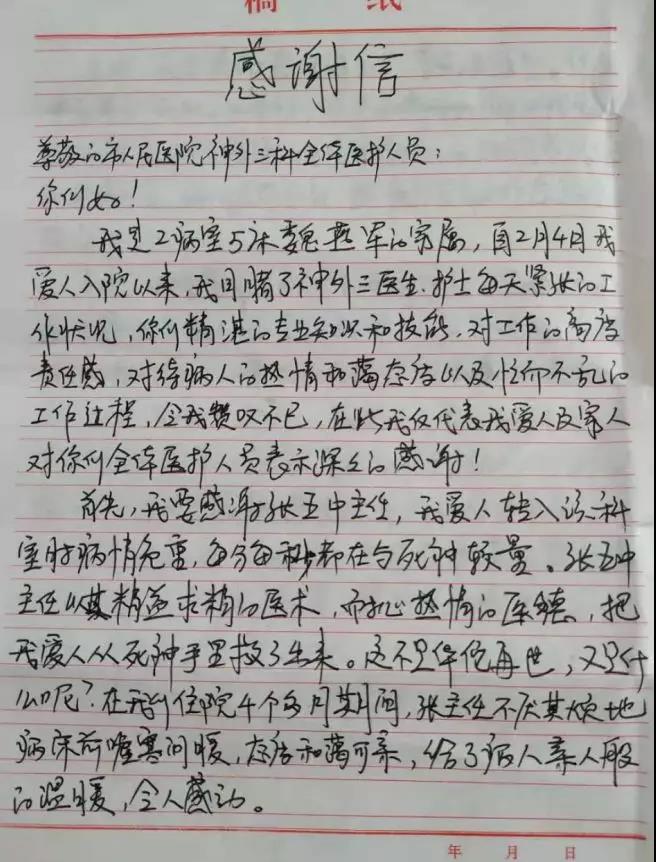 稿 纸
感谢信
尊敬的市人民医院神外三科全体医护人员：
你们好！
我是2病室5床魏燕军的家属，自2月4日我
爱人入院以来，我目睹了神外三医生、护士每天紧张的工
作状况，你们精湛的专业知识和技能，对工作的高度
责任感，对待病人的热情和蔼态度以及忙而不乱的
工作过程，令我赞叹不已，在此我仅代表我爱人及家人
对你们全体医护人员表示深深的感谢！
首先，我要感谢张五中主任，我爱人转入该科
室时病情危重，每分每秒都在与死神较量。张五中
主任以其精益求精的医术，而热情的医德，把
我爱人从死神手里拉了出来。这不是华佗再世，又是什
么呢？在我们住院4个多月期间，张主任不厌其烦地
病床前嘘寒问暖，态度和蔼可亲，给了病人亲人般
的温暖，令人感动。
年 月 日